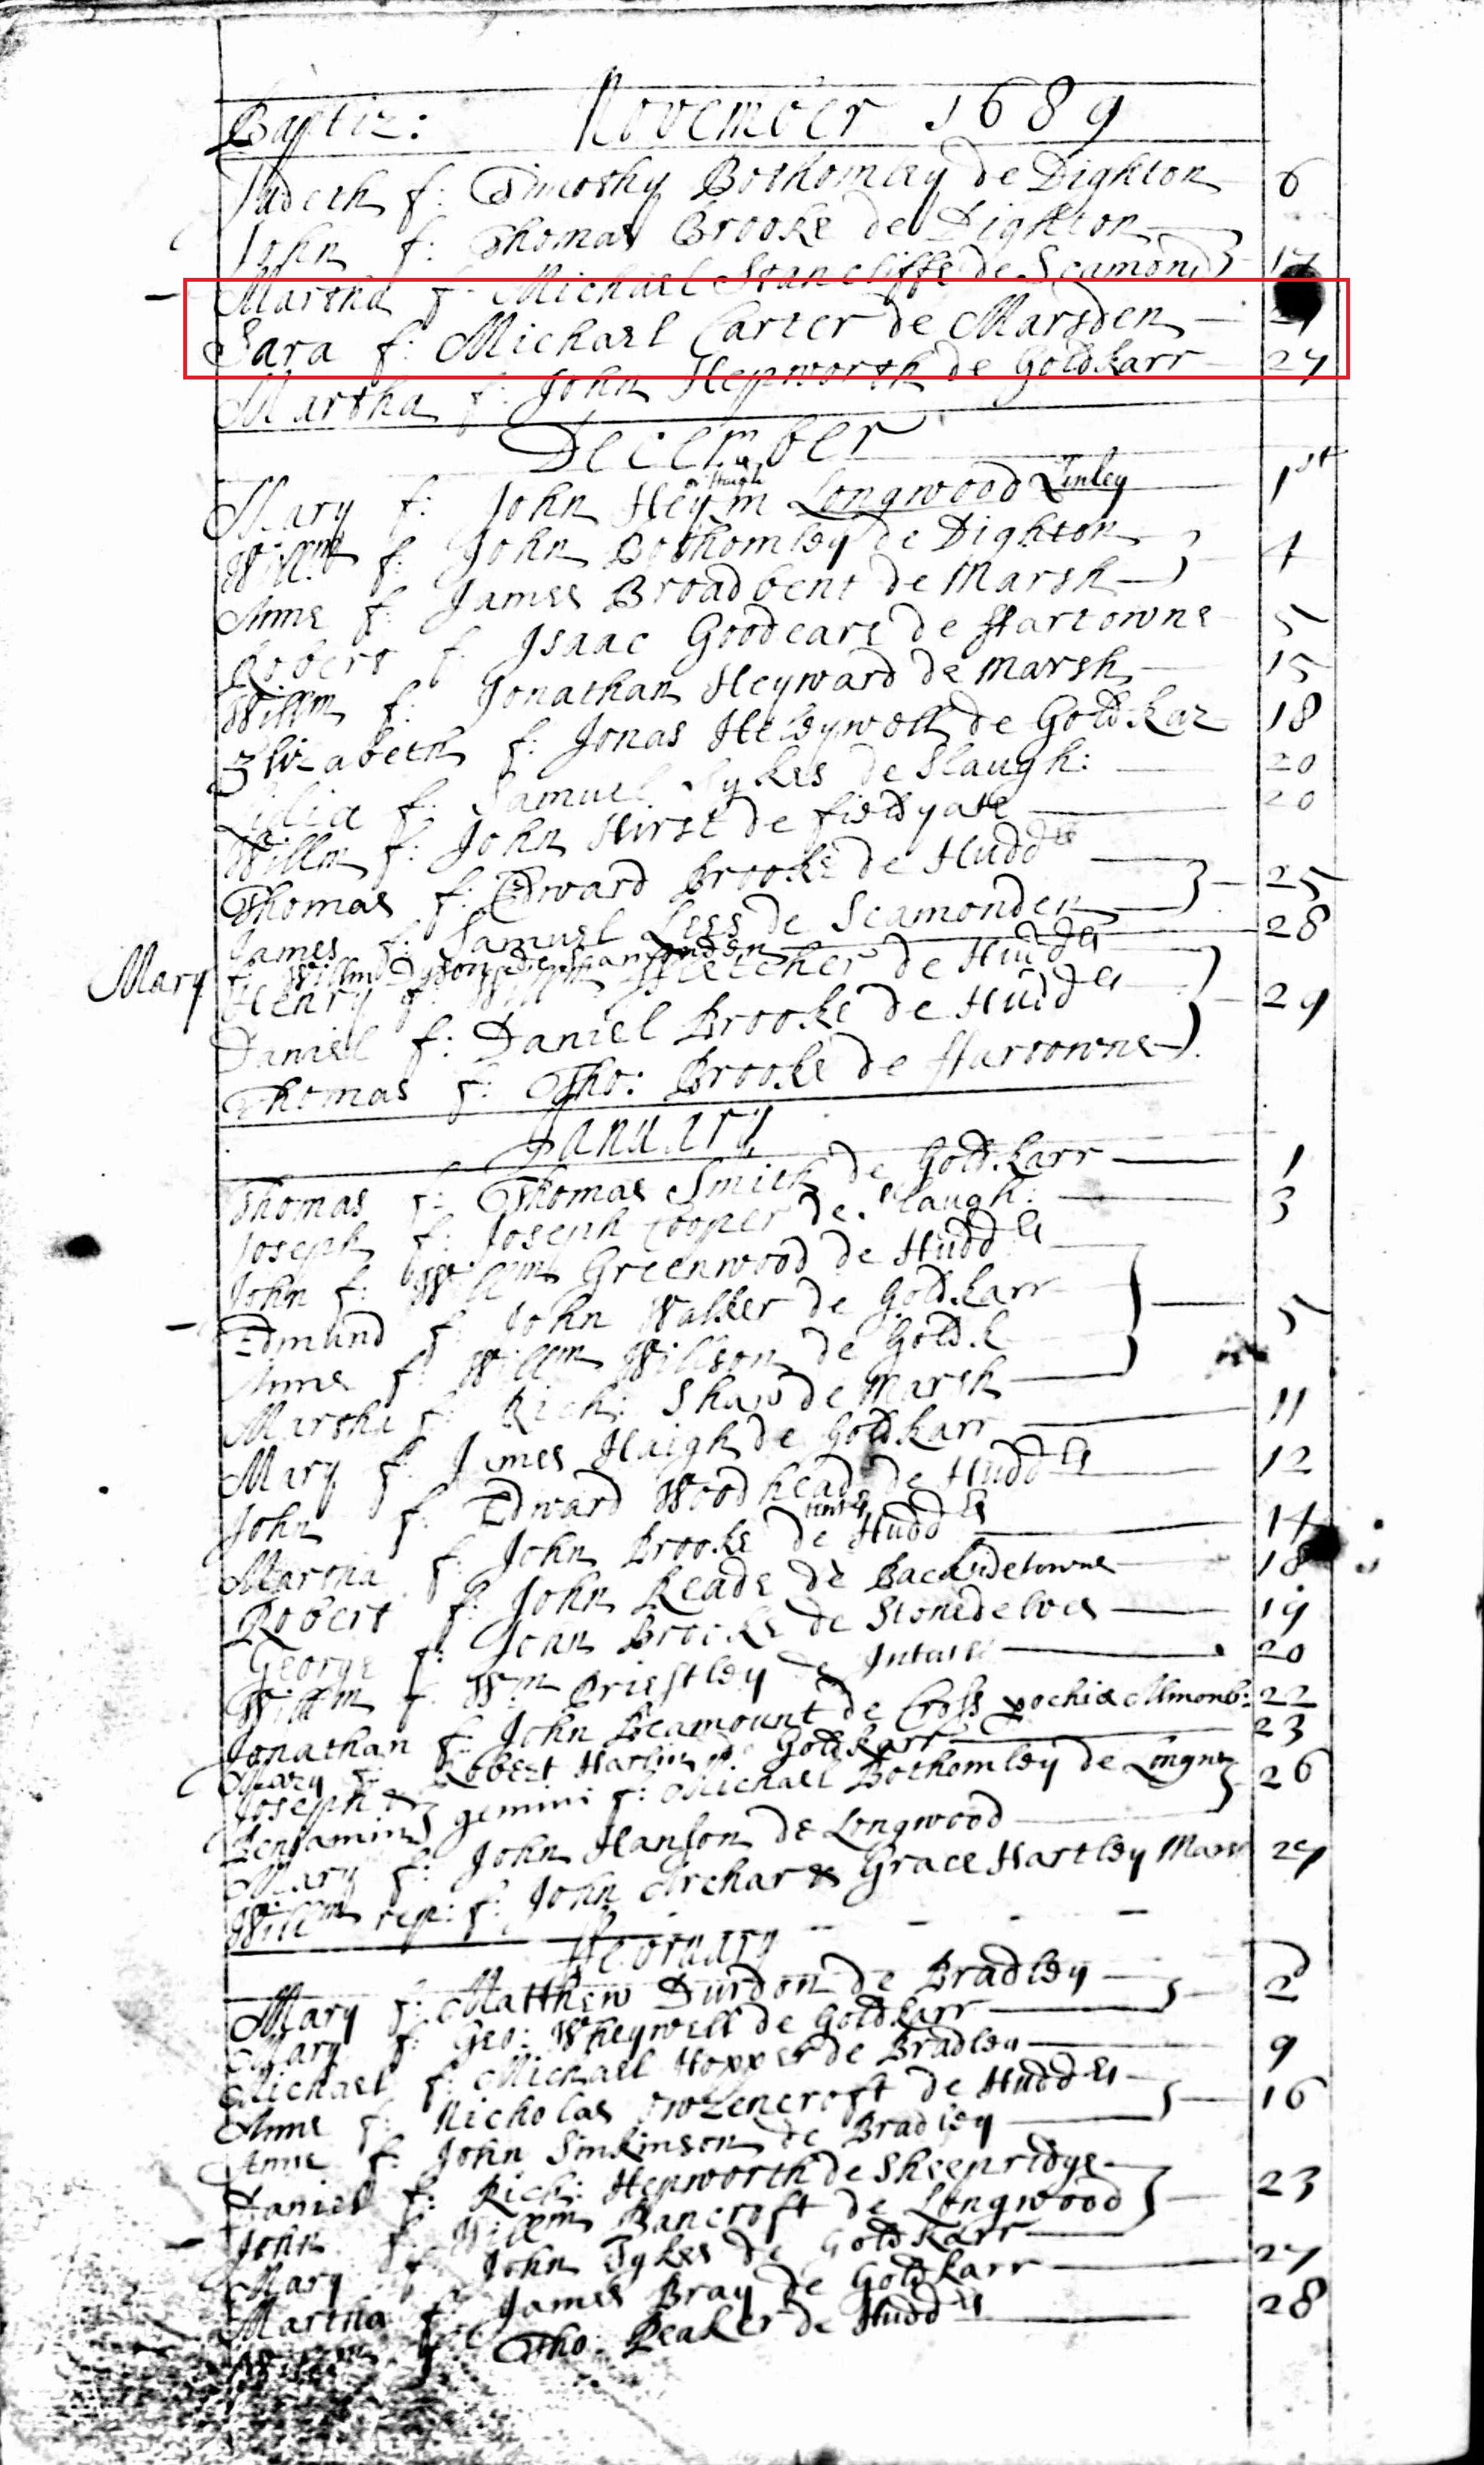 Baptiz: November 1689
Judeth f: Timothy Bothomley de Dighton 6
John f: Thomas Brooke de Dighton
Martha f: Michael Stancliffe de Scamond 17
Sara f: Michael Carter de Marsden
Martha f: John Hepworth de Goldkarr 27
December
Mary f: John Hey m Longwood Linley 1st
Willm f: John Bothomley de Dighton
Anne f: James Broadbent de Marsh 4
Robert f: Isaac Goodeare de ffartowne 5
Willm f: Jonathan Heyward de Marsh 15
Elizabeth f: Jonas Heleywell de Goldkar 18
f: Samuel Sykes de Slaugh: 20
Willm f: John Hirst de fieldyate 20
Thomas f: Edward Brooke de Hudd
James f: Samuel Lees de Scamonden 25
Mary f: Willm Dyson de Scamonden 28
Henry f: Willm ffletcher de Hudd
Daniel f: Daniel Brooke de Hudd 29
Thomas f: Tho: Brooke de ffartowne
January
Thomas f: Thomas Smith de Goldkarr 1
Joseph f: Joseph Cooper de Slaugh: 3
John f: Willm Greenwood de Hudd
Edmund f: John Walker de Goldkarr 5
Anne f: Willm Willson de Gold:k
Martha f: Rich: Shaw de Marsh
Mary f: James Haigh de Goldkarr 11
John f: Edward Woodhead de Hudd 12
Martha f: John Brooke de Hudd 14
Robert f: John Reade de Backsidetowne 18
George f: John Brooke de Stonedelves 19
Willm f: Wm Priestley de 20
Jonathan f: John Beamount de Cross pochiæ Almonb: 22
Mary f: Robert de Goldkarr 23
Joseph &
Benjamin gemini f: Michael Bothomley de Longw 26
Mary f: John Hanson de Longwood
Willm rep: f: John Archar & Grace Hartley 27
ffebruary
Mary f: Matthew Durdon de Bradley 2
Mary f: Geo: Wheywell de Goldkarr
Michael f: Michael Hopper de Bradley 9
Anne f: Nicholas de Hudd
Anne f: John Sinkinson de Bradley 16
Daniel f: Rich: Hepworth de Sheepridge
John f: Willm Bancroft de Longwood 23
Mary f: John Sykes de Goldkarr
Martha f: James Bray de Goldkarr 27
f: Tho: Beaker de Hudd 28